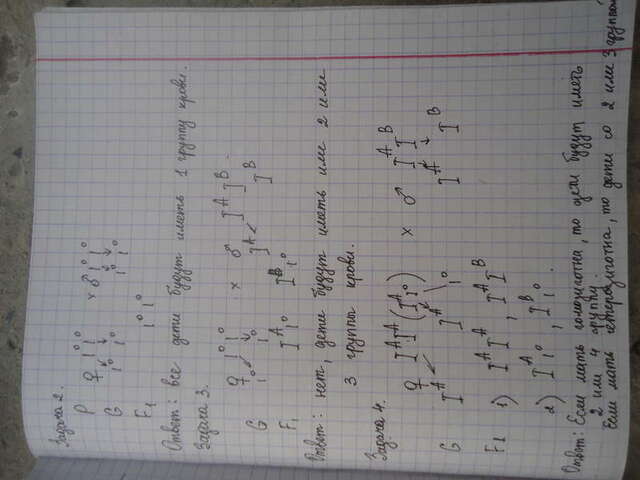 Задача 2.
P ♀ i⁰i⁰ x ♂ i⁰i⁰
G i⁰ i⁰ i⁰ i⁰
F₁ i⁰i⁰
Ответ: все дети будут иметь 1 группу крови.
Задача 3.
♀ i⁰i⁰ x ♂ IᴬIᴮ.
G i⁰ i⁰ Iᴬ Iᴮ
F₁ Iᴬi⁰ Iᴮi⁰
Ответ: нет, дети будут иметь или 2 или
3 группы крови.
Задача 4.
♀ IᴬIᴬ (Iᴬi⁰) x ♂ IᴬIᴮ
G Iᴬ Iᴬ i⁰ Iᴬ Iᴮ
F1 1) IᴬIᴬ, IᴬIᴮ
2) Iᴬi⁰, Iᴮi⁰.
Ответ: Если мать гомозиготна, то дети будут иметь
2 или 4 группу.
Если мать гетерозиготна, то дети со 2 или 3 группой